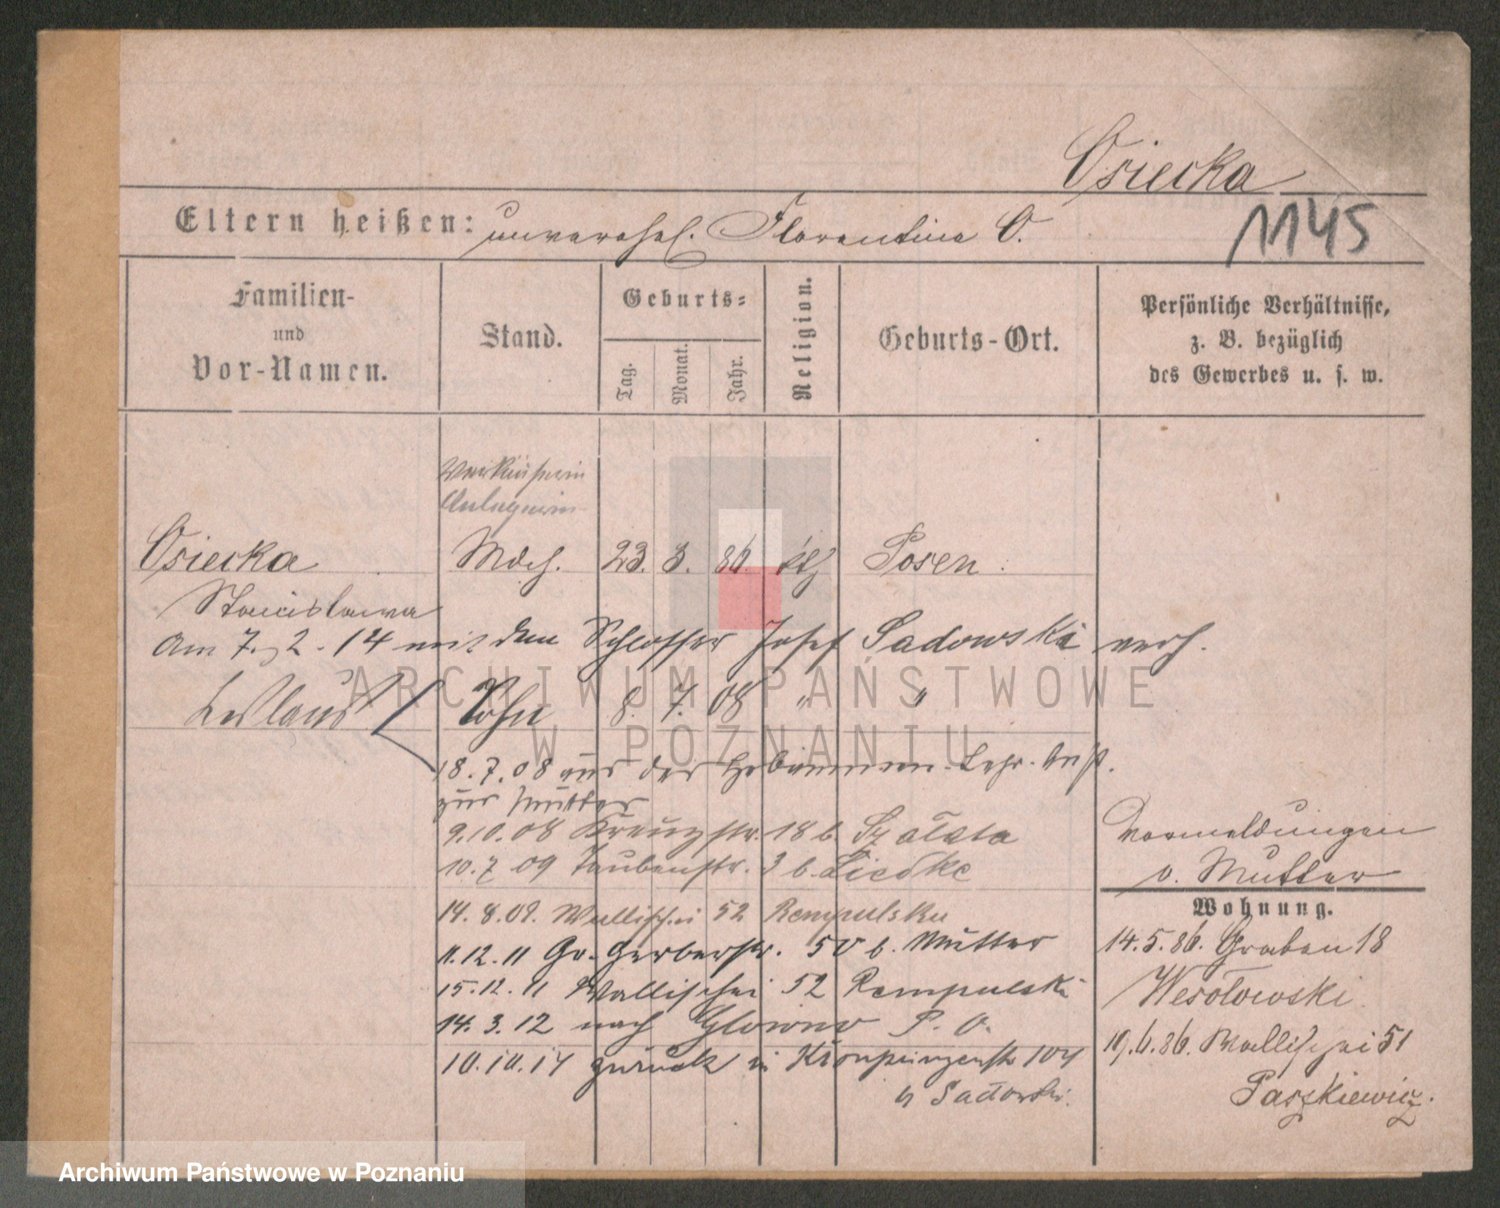 Osiecka
Eltern heißen: unverehel. Florentina O.
1145
Familien-
und
Vor-Namen.
Stand.
Geburts-
Tag.
Monat.
Jahr.
Religion.
Geburts-Ort.
Persönliche Verhältnisse,
z. B. bezüglich
des Gewerbes u. s. w.
Verkäuferin
Anlegerin
Osiecka Mdch. 23. 3. 86. kth Posen.
Stanislawa
Am 7. 2. 14 mit dem Schlosser Josef Sadowski verh.
Ladislaus Sohn 8. 7. 08 " "
18.7.08 aus der Hebammen-Lehr-Anst.
zur Mutter
9.10.08 Kreuzstr. 18 b. Szafata
10.7 09 Taubenstr. 3 b. Liedke
14.8.09. Wallischei 52 Rempulska
11.12.11 Gr. Gerberstr. 50 b. Mutter
15.12.11 Wallischei 52 Rempulski
14.3.12 nach Glowno P. O.
10.10.14 zurück in Kronprinzenstr 104
b Sadowski.
Vormeldungen
v. Mutter
Wohnung.
14.5.86. Graben 18
Wesołowski.
19.6.86. Wallischei 51
Paszkiewicz.
ARCHIWUM PAŃSTWOWE
W POZNANIU
Archiwum Państwowe w Poznaniu